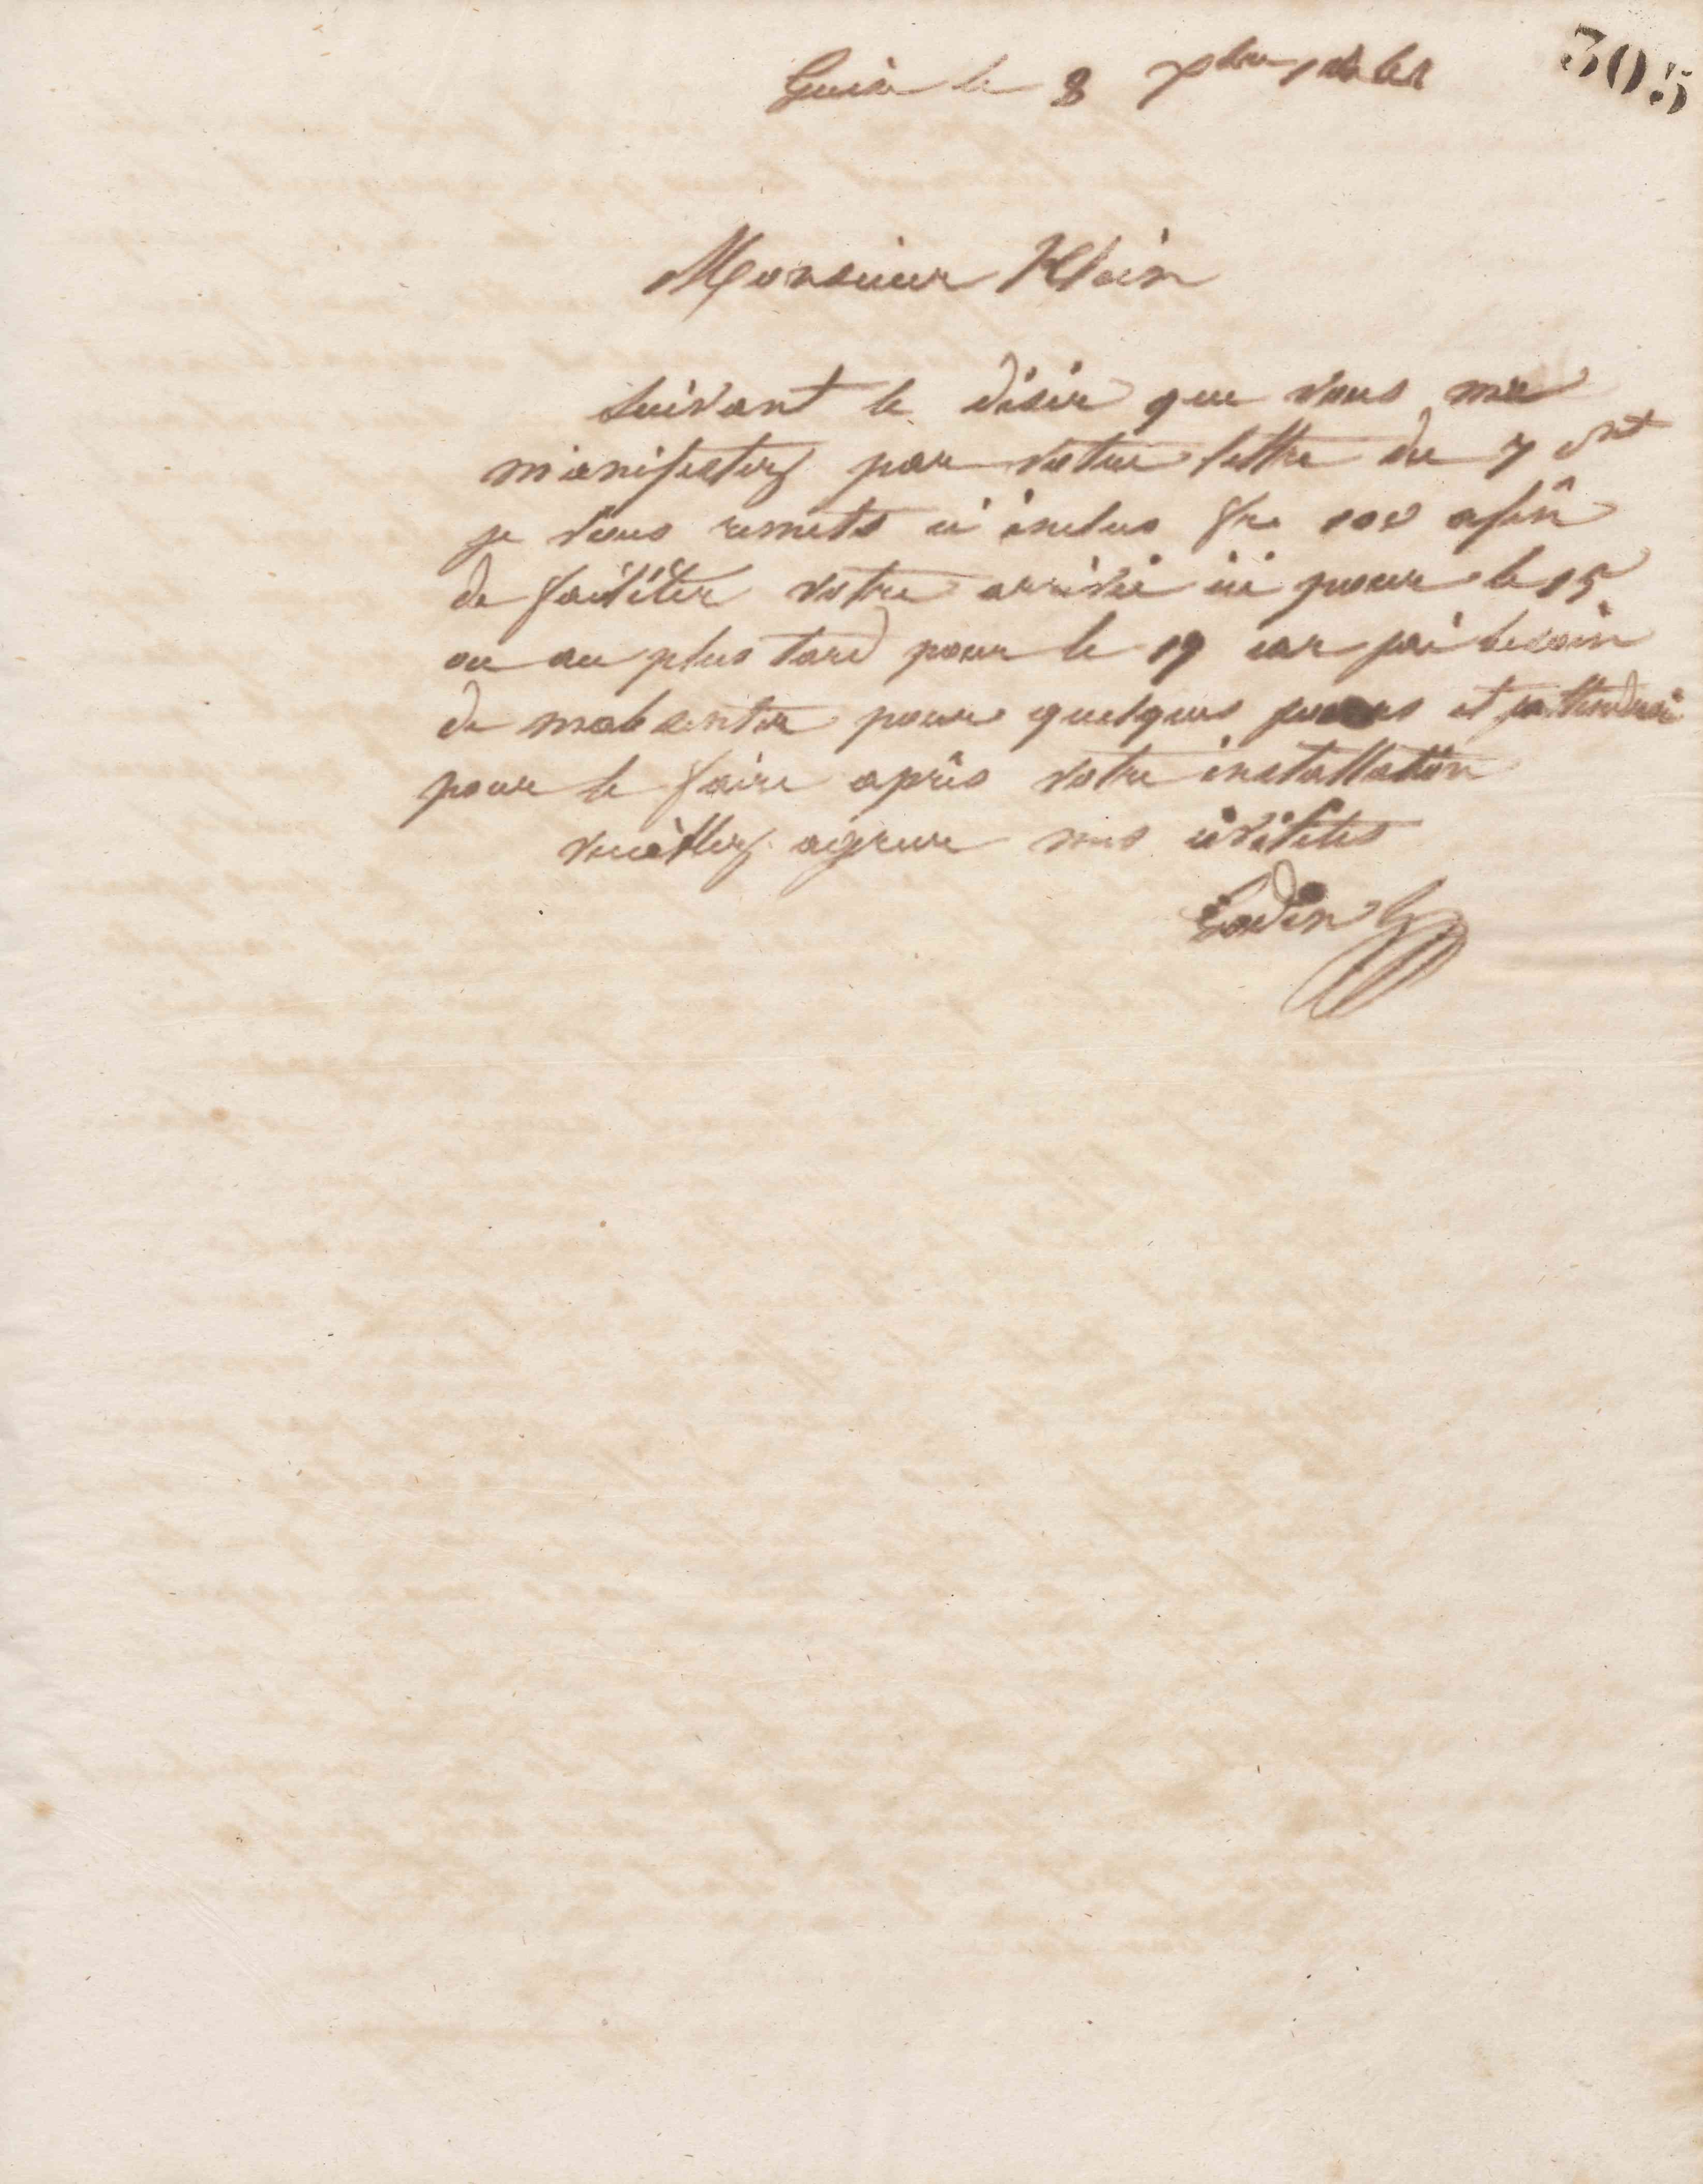 305
Guise le 8 7bre 1861
Monsieur Klein
Suivant le désir que vous me
manifestez par votre lettre du 7 ct
je vous remets ci inclus frs 100 afin
de faciliter votre arrivée ici pour le 15
ou au plus tard pour le 19 car jai besoin
de mabsenter pour quelques jours et jattendrai
pour le faire après votre installation
veuillez agréer mes civilités
Godin